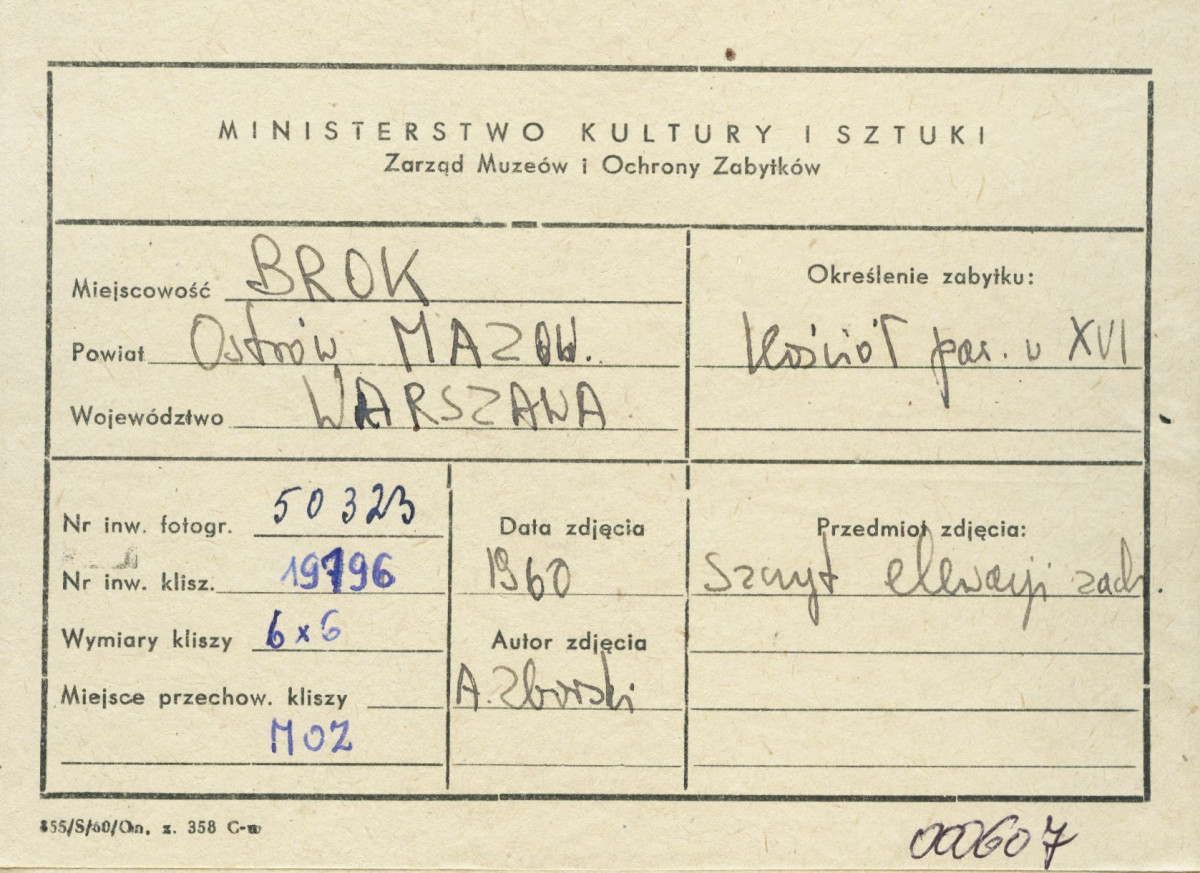 MINISTERSTWO KULTURY I SZTUKI
Zarząd Muzeów i Ochrony Zabytków
Miejscowość BROK
Powiat Ostrów MAZOW.
Województwo WARSZAWA
Określenie zabytku:
Kościół par. v XVI
Nr inw. fotogr. 50323
Nr inw. klisz. 19796
Wymiary kliszy 6x6
Miejsce przechow. kliszy
MOZ
Data zdjęcia
1960
Autor zdjęcia
A. Zborski
Przedmiot zdjęcia:
Szczyt elewacji zach.
355/S/60/On. z. 358 C-w
000607